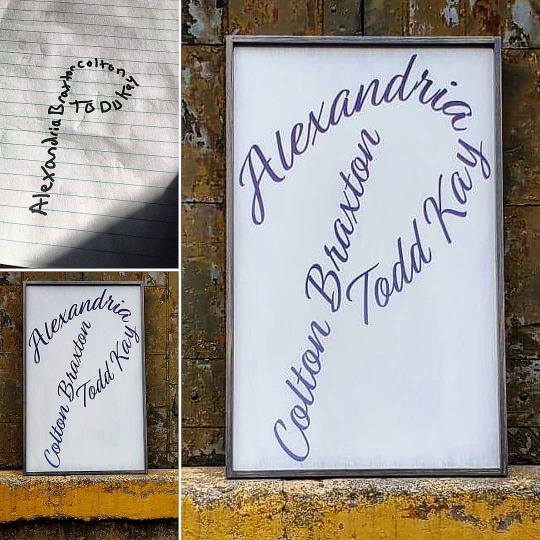 Alexandria Braxton Colton
Todd Kay
Alexandria
Colton Braxton
Todd Kay
Alexandria
Colton Braxton
Todd Kay